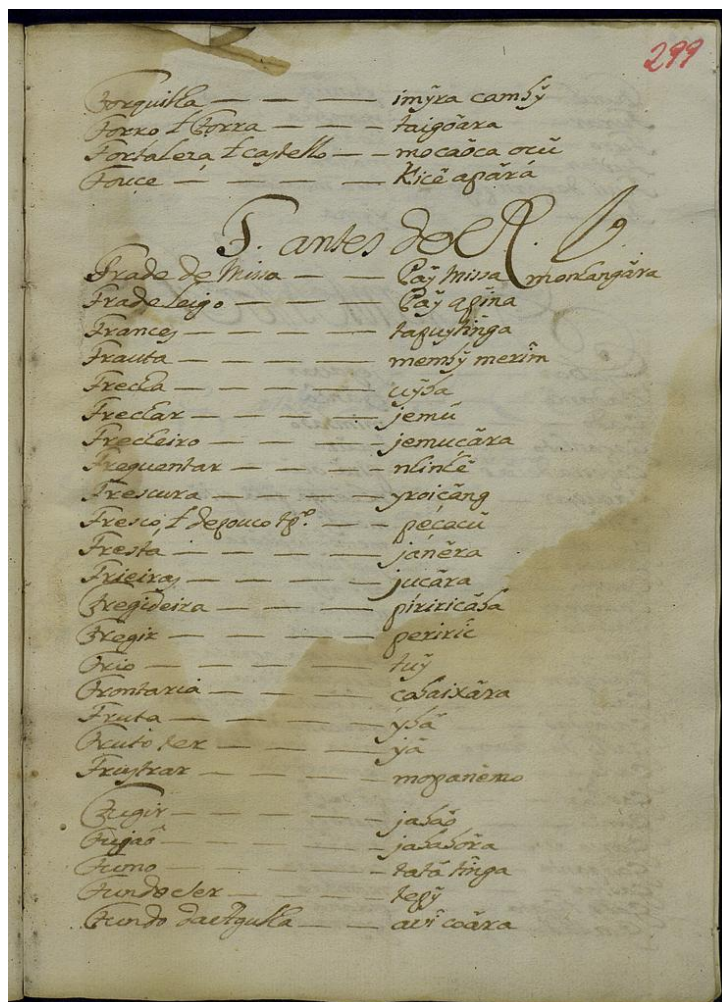 299
Forquilha — — — — imỹra cambỹ
Forro ł Forra — — — — taigoãra
Fortaleza ł castello — — mocaõca ocũ
Fouce — — — — — Kicẽ apãrá
F. antes do R.
Frade de Missa — — — Paỹ Missa monhangãra
Frade leigo — — — — Paỹ apina
Frances — — — — — tapuytĩnga
Frauta — — — — — membỹ merĩm
Frecha — — — — — uỹba
Frechar — — — — — jemũ
Frecheiro — — — — — jemucãra
Frequentar — — — —
Frescura — — — — — yroicãng
Fresco, ł de pouco tpº. — — — péçacũ
Fresta — — — — — janẽra
Frieiras — — — — — jucãra
Fregideira — — — — piriricãba
Fregir — — — — — periric
Frio — — — — — tuỹ
Frontaria — — — — cabaixãra
Fruta — — — — — ybã
Fruto ter — — — — yã
Frustrar — — — — mopanẽmo
Fugir — — — — — jabáo
Fujaõ — — — — — jababõra
Fumo — — — — — tatá tĩnga
Fundo ser — — — — tepỹ
Fundo da Agulha — — — avĩ coãra